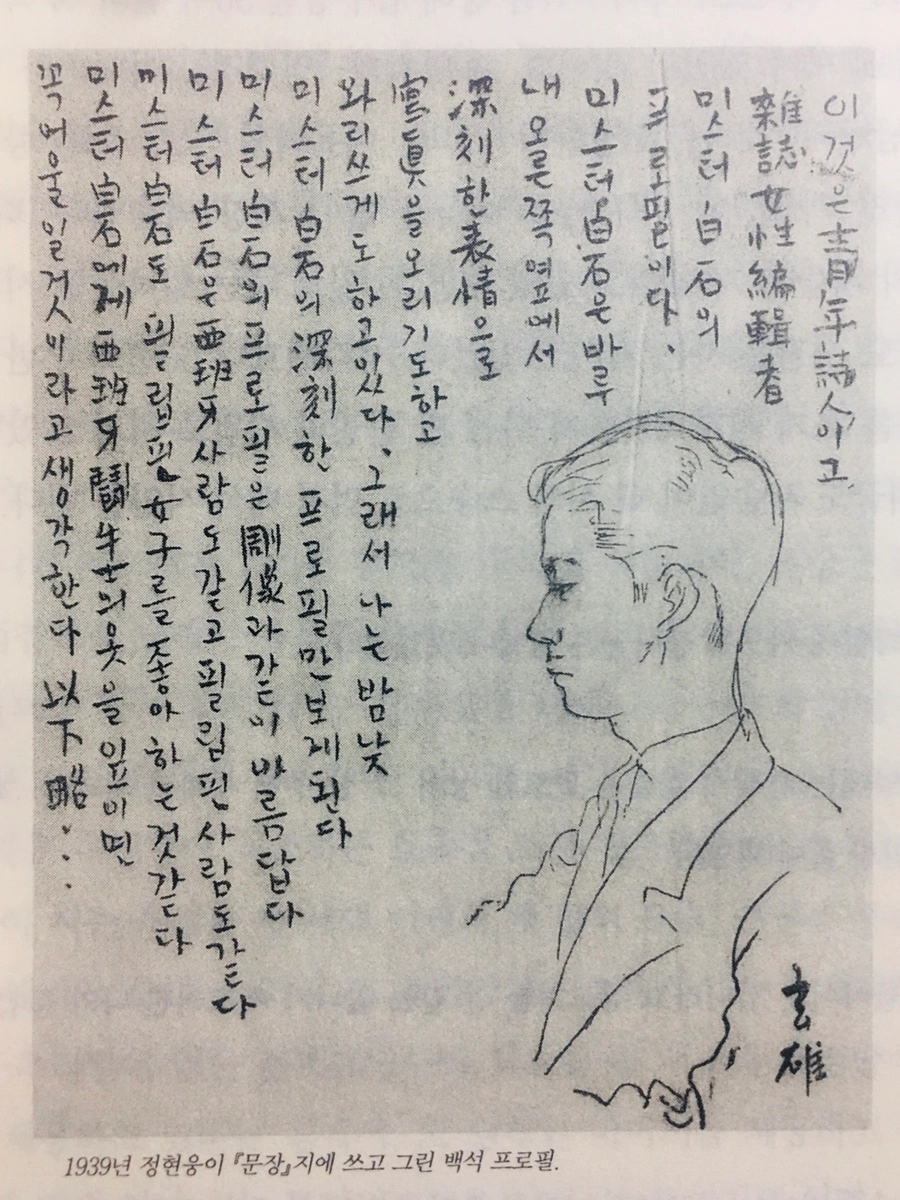 이것은靑年詩人이고
雜誌女性編輯者
미스터白石의
프로필이다.
미스터白石은바루
내오른쪽옆에서
深刻한表情으로
寫眞을오리기도하고
와리쓰게도하고있다.그래서나는밤낮
미스터白石의深刻한프로필만보게된다
미스터白石의프로필은彫像과같이아름답다
미스터白石은西班牙사람도같고필립핀사람도같다
미스터白石도필립핀女子를좋아하는것같다
미스터白石에게西班牙鬪牛士의옷을입히면
꼭어울일것이라고생각한다以下略..
玄雄
1939년 정현웅이 『문장』지에 쓰고 그린 백석 프로필.